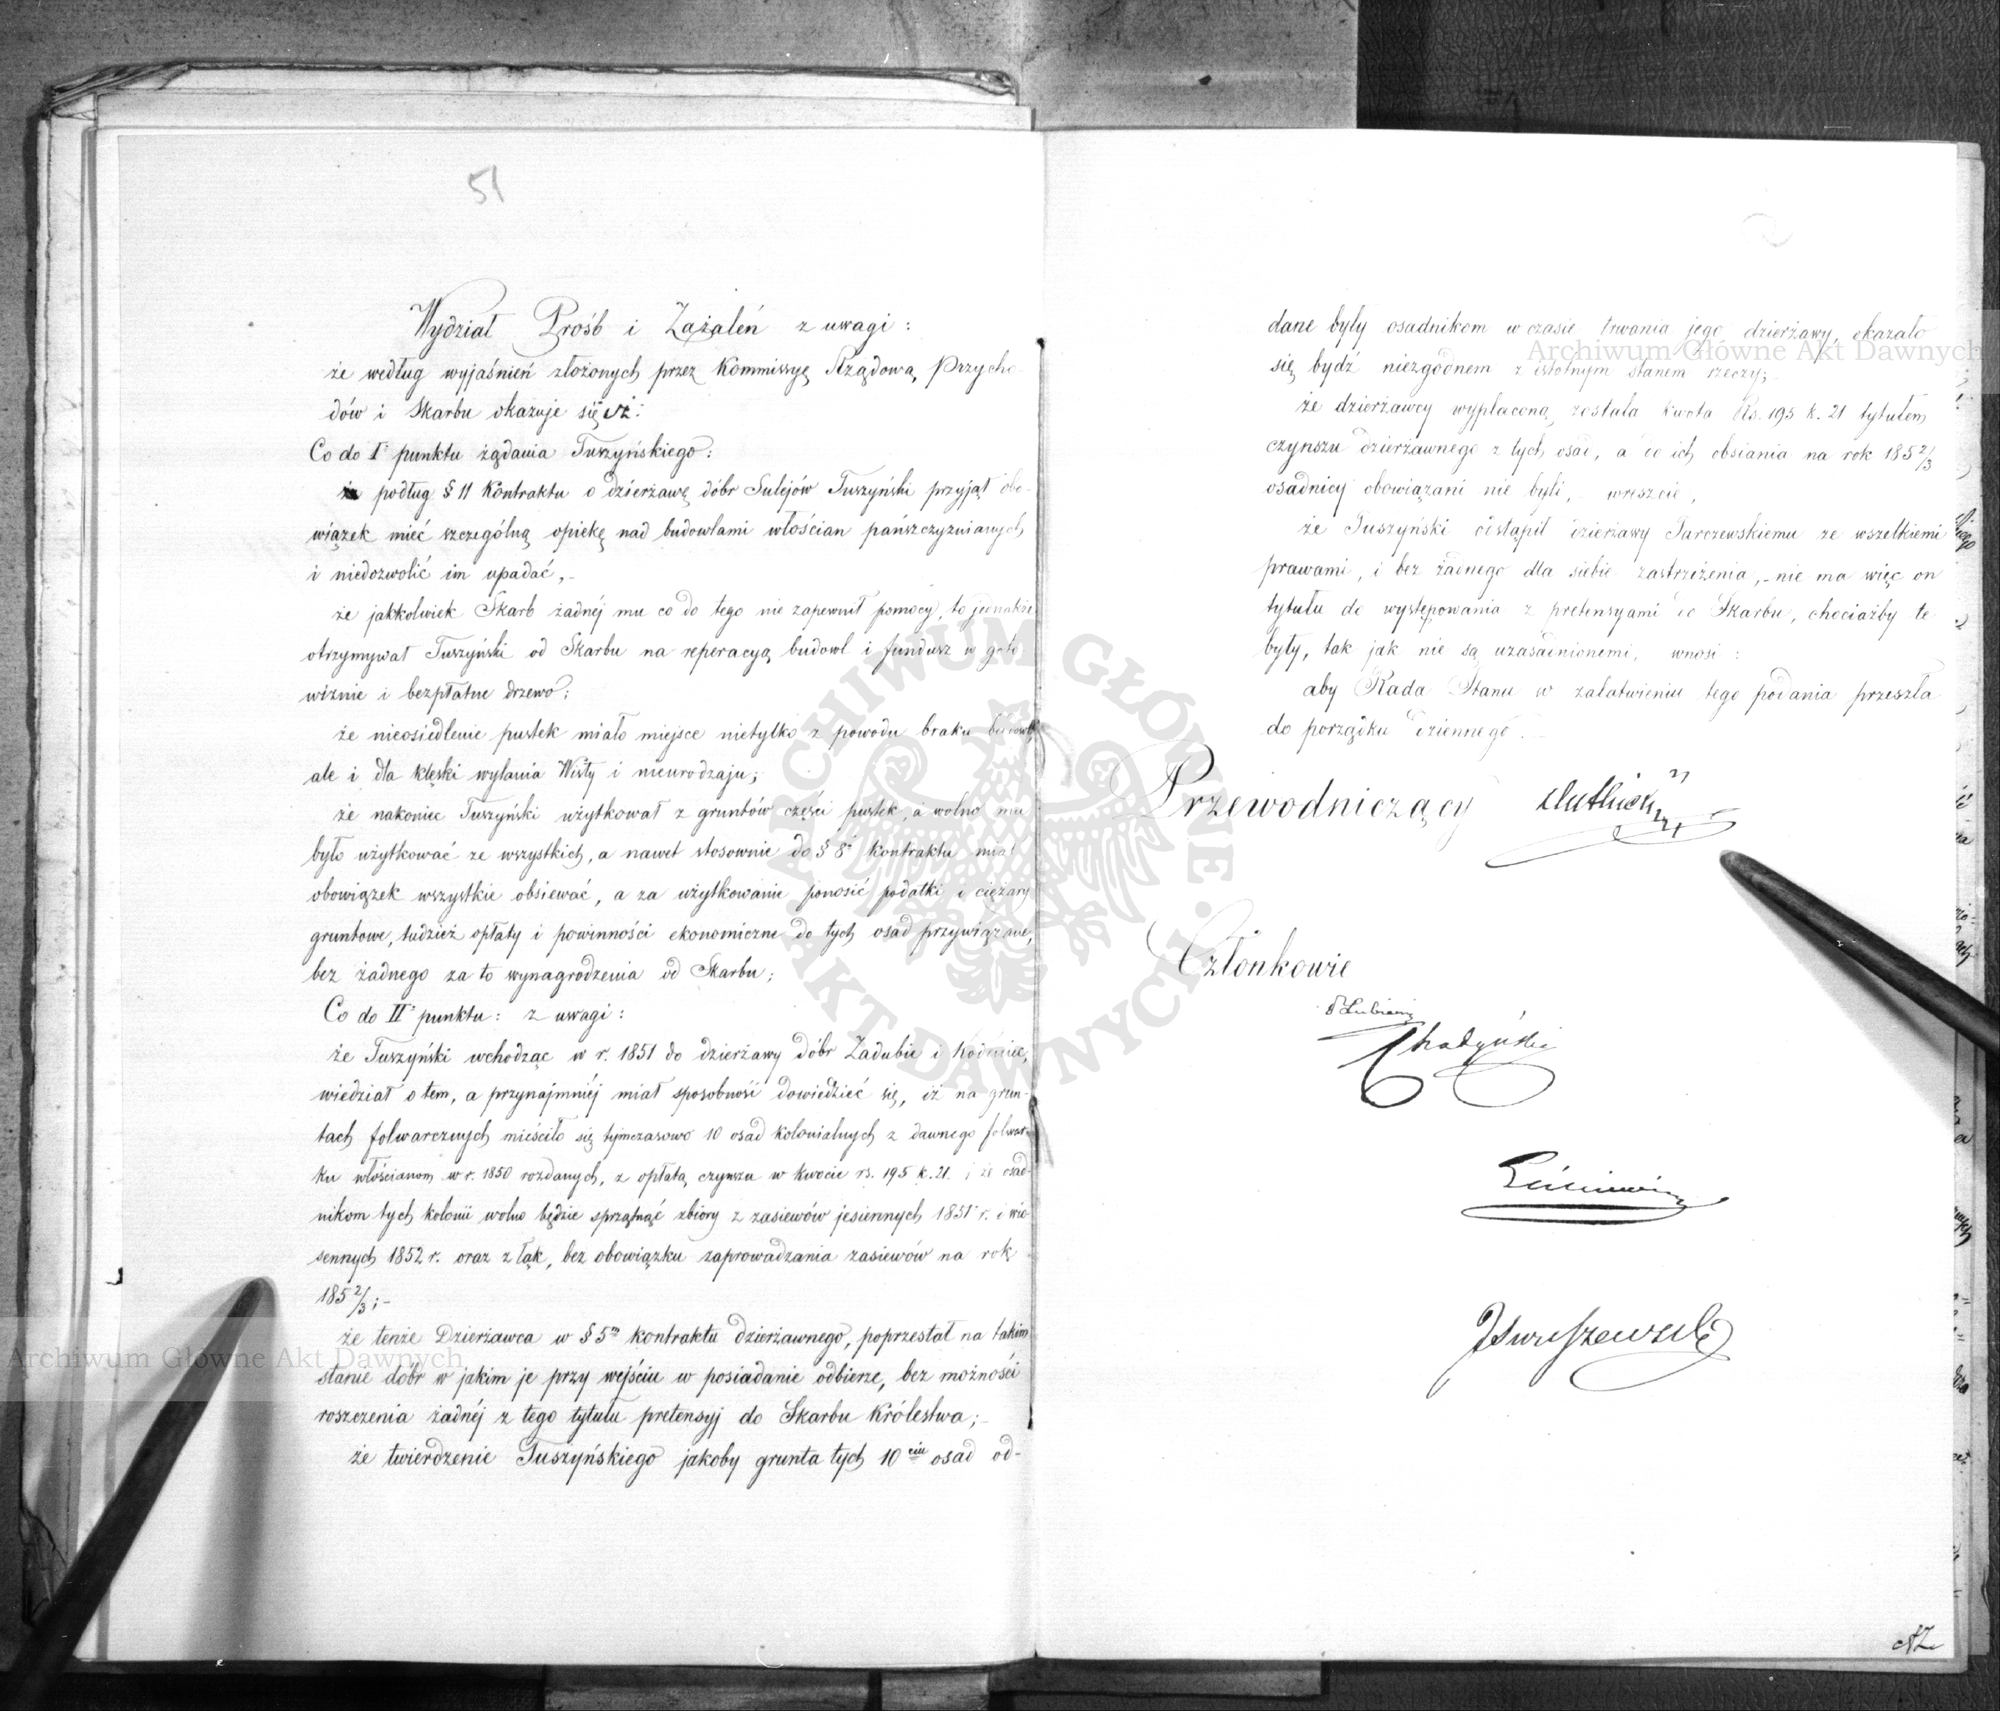 51
Wydział Próśb i Zażaleń z uwagi:
że według wyjaśnień złożonych przez Kommissyę Rządową Przycho-
dów i Skarbu okazuje się iż:
Co do I punktu żądania Tuszyńskiego:
podług § 11 Kontraktu o dzierżawę dóbr Sulejów Tuszyński przyjął obo-
wiązek mieć szczególną opiekę nad budowlami włościan pańszczyznianych
i niedozwolić im upadać,-
że jakkolwiek Skarb żadnéj mu co do tego nie zapewnił pomocy, to jednakże
otrzymywał Tuszyński od Skarbu na reperacyą budowl i fundusz w goto
wiznie i bezpłatne drzewo;
że nieosiedlenie pustek miało miejsce nietylko z powodu braku budowli
ale i dla klęski wylania Wisły i nieurodzaju;
że nakoniec Tuszyński użytkował z gruntów części pustek, a wolno mu
było użytkować ze wszystkich, a nawet stosownie do § 8 Kontraktu miał
obowiązek wszystkie obsiewać, a za użytkowanie ponosić podatki i ciężary
gruntowe, tudzież opłaty i powinności ekonomiczne do tych osad przywiązane,
bez żadnego za to wynagrodzenia od Skarbu;
Co do II punktu: z uwagi:
że Tuszyński wchodząc w r. 1851 do dzierżawy dóbr Zadubie i
wiedział o tem, a przynajmniéj miał sposobność dowiedzieć się, iż na grun-
tach folwarcznych mieściło się tymczasowo 10 osad kolonialnych z dawnego folwar-
ku włościanom w r. 1850 rozdanych, z opłatą czynszu w kwocie rs. 195 k. 21. i że osad-
nikom tych kolonii wolno będzie sprzątnąć zbiory z zasiewów jesiennych 1851 r. i wio-
sennych 1852 r. oraz z łąk, bez obowiązku zaprowadzania zasiewów na rok
185 2/3;-
że tenże Dzierżawca w § 5m kontraktu dzierżawnego, poprzestał na takim
stanie dóbr w jakim je przy wejściu w posiadanie odbierze, bez możności
roszczenia żadnéj z tego tytułu pretensyj do Skarbu Królestwa;-
że twierdzenie Tuszyńskiego jakoby grunta tych 10ciu osad od-
dane były osadnikom w czasie trwania jego dzierżawy, okazało
się bydź niezgodnem z istotnym stanem rzeczy;-
że dzierżawcy wypłaconą została kwota Rs. 195 k. 21 tytułem
czynszu dzierżawnego z tych osad, a do ich obsiania na rok 185 2/3
osadnicy obowiązani nie byli,- wreszcie,
że Tuszyński odstąpił dzierżawy Tarczewskiemu ze wszelkiemi
prawami, i bez żadnego dla siebie zastrzeżenia,- nie ma więc on
tytułu do występowania z pretensyami do Skarbu, chociażby te
były, tak jak nie są uzasadnionemi, wnosi:
aby Rada Stanu w załatwieniu tego podania przeszła
do porządku dziennego.-
Przewodniczący
Członkowie
Archiwum Główne Akt Dawnych
Archiwum Główne Akt Dawnych
ARCHIWUM GŁÓWNE · AKT DAWNYCH ·